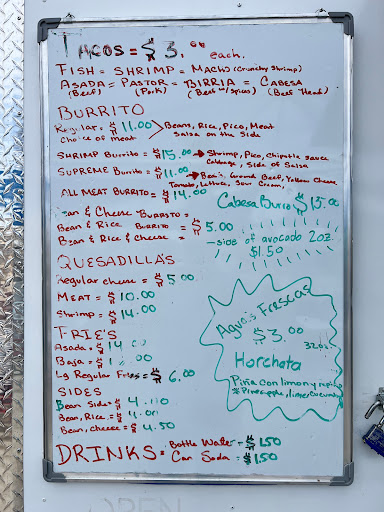 TACOS = $3.00 each.
FISH = SHRIMP = MACHO (Crunchy Shrimp)
ASADA = PASTOR = BIRRIA = CABESA
(Beef) (Pork) (Beef w/spices) (Beef Head)
BURRITO
Regular = $11.00 > Bean, Rice, Pico, Meat
choice of meat Salsa on the Side
SHRIMP Burrito = $15.00 → Shrimp, Pico, Chipotle sauce
Cabbage, Side of Salsa
SUPREME Burrito = $11.00 → Bean, Ground Beef, Yellow Cheese
Tomato, Lettuce, Sour Cream,
ALL MEAT BURRITO = $14.00
Cabesa Burro $13.00
ean & Cheese BURRITO =
Bean & Rice BURRITO = $5.00
Bean & Rice & cheese =
-side of avocado 2oz.
$1.50
QUESADILLA'S
Regular cheese = $5.00
MEAT = $10.00
Shrimp = $14.00
Agua's Frescas
$3.00
32oz.
Horchata
Piña con limon y
*Pineapple, lime,
FRIE'S
Asada = $14.00
Baja = $1 .00
Lg Regular Fries = $6.00
SIDES
Bean Side = $4.00
Bean, Rice = $4.00
Bean, cheese = $4.50
DRINKS = Bottle Water - $1.50
Can Soda - $1.50
OPEN